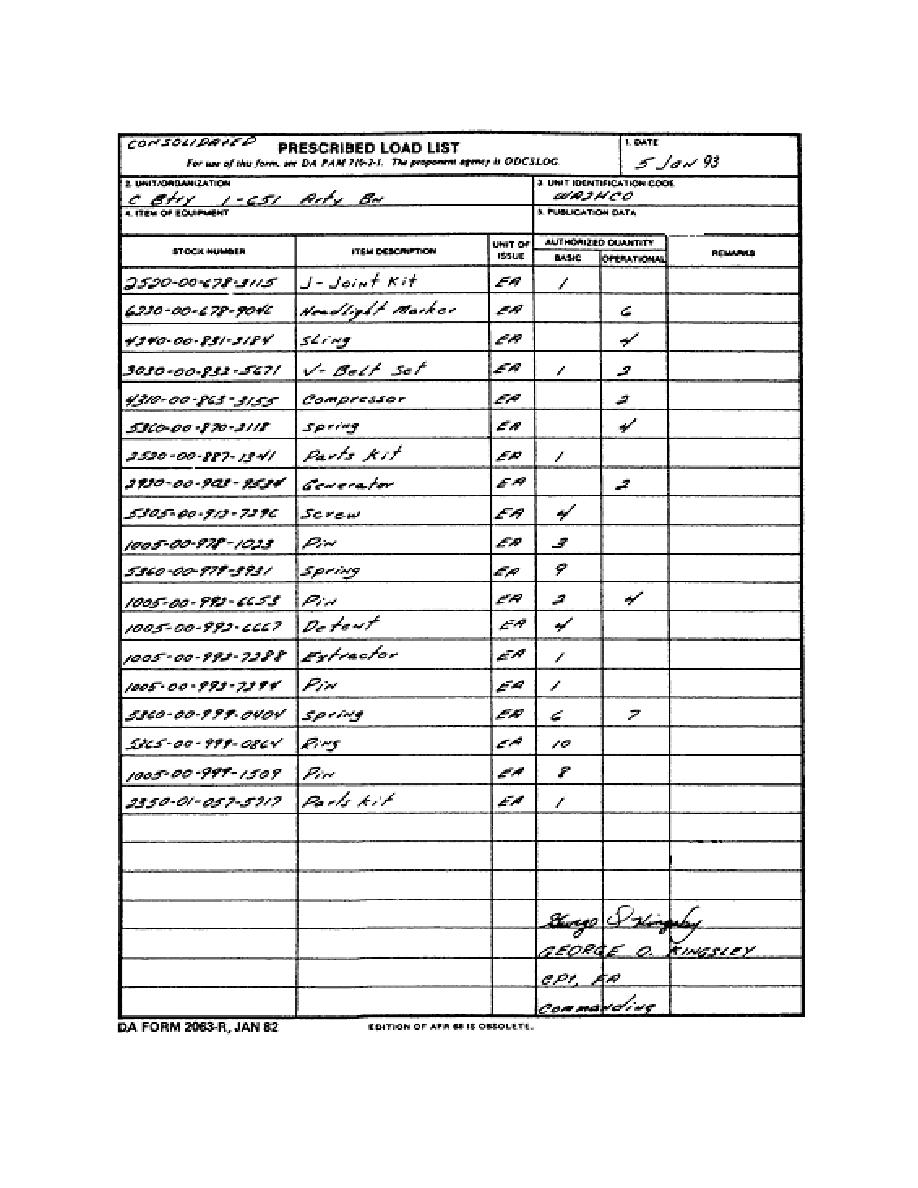 CONSOLIDATED
PRESCRIBED LOAD LIST
For use of this form, see DA PAM 710-2-1. The proponent agency is ODCSLOG.
1. DATE
5 Jan 93
2. UNIT/ORGANIZATION
C Btry 1-651 Arty Bn
3. UNIT IDENTIFICATION CODE
4. ITEM OF EQUIPMENT
5. PUBLICATION DATA
STOCK NUMBER ITEM DESCRIPTION UNIT OF ISSUE AUTHORIZED QUANTITY BASIC OPERATIONAL REMARKS
2520-00-678-3115 J-Joint Kit EA 1
6220-00-678-9046 Headlight Marker EA 6
4340-00-831-3184 Sling EA 4
3030-00-832-5671 V-Belt Set EA 1 2
4310-00-863-3155 Compressor EA 2
5360-00-870-2118 Spring EA 4
2520-00-887-1341 Parts Kit EA 1
2920-00-903-9534 Generator EA 2
5305-00-913-7296 Screw EA 4
1005-00-978-1023 Pin EA 3
5360-00-979-3931 Spring EA 9
1005-00-992-6653 Pin EA 2 4
1005-00-992-6667 Detent EA 4
1005-00-992-7288 Extractor EA 1
1005-00-992-7294 Pin EA 1
5360-00-999-0404 Spring EA 6 7
5365-00-999-0864 Ring EA 10
1005-00-999-1509 Pin EA 8
2350-01-057-5717 Parts Kit EA 1
George O Kingsley
GEORGE O. KINGSLEY
CPT, FA
Commanding
DA FORM 2063-R, JAN 82
EDITION OF APR 68 IS OBSOLETE.